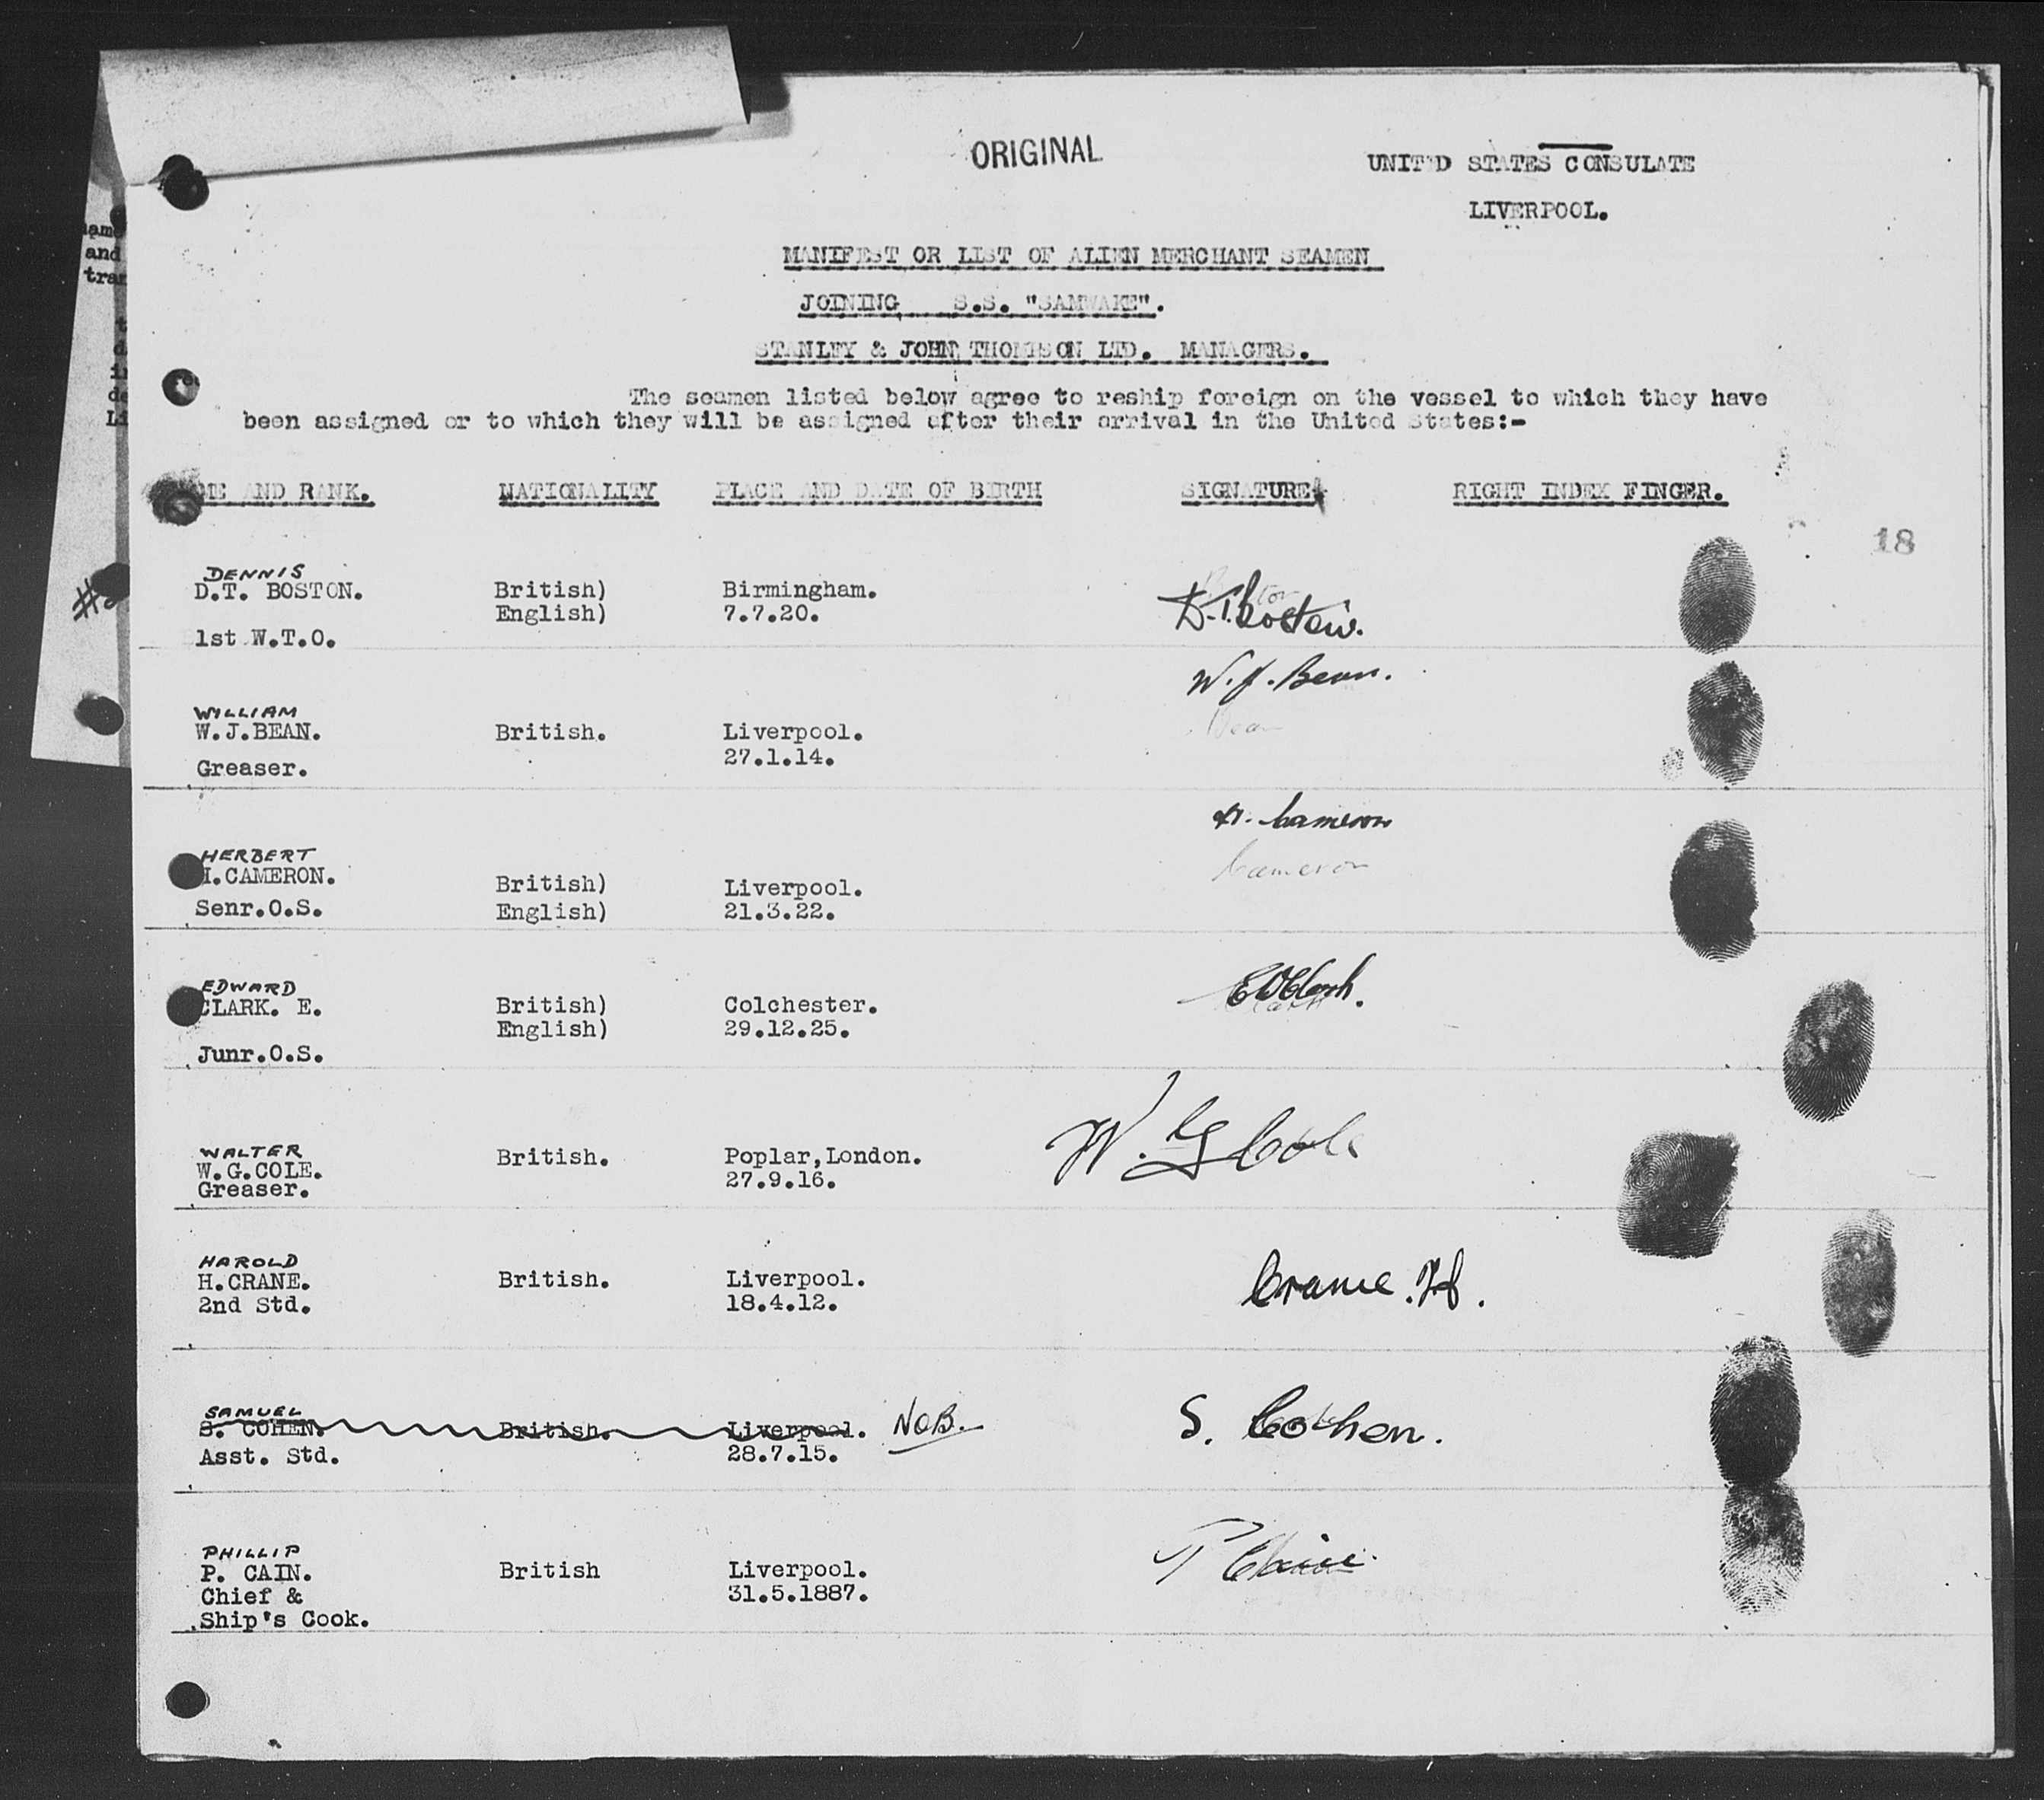 ORIGINAL
UNIT D STATES CONSULATE
LIVERPOOL.
MANIFEST OR LIST OF ALIEN MERCHANT SEAMEN
JOINING S.S. "SAMWAKE".
STANLEY & JOHN THOMPSON LTD. MANAGERS.
The seamen listed below agree to reship foreign on the vessel to which they have
been assigned or to which they will be assigned after their arrival in the United States:-
ME AND RANK. NATIONALITY PLACE AND DATE OF BIRTH SIGNATURE RIGHT INDEX FINGER.
18
DENNIS
D.T. BOSTON. British) Birmingham. D.T. Boston.
English) 7.7.20.
1st W.T.O.
W. J. Bean.
WILLIAM
W.J.BEAN. British. Liverpool. Bean
27.1.14.
Greaser.
H. Cameron
HERBERT
H.CAMERON. British) Liverpool. Cameron
Senr.O.S. English) 21.3.22.
EDWARD
CLARK. E. British) Colchester. E W Clark.
English) 29.12.25.
Junr.O.S.
WALTER
W.G.COLE. British. Poplar,London. W. G Cole
Greaser. 27.9.16.
HAROLD
H.CRANE. British. Liverpool. Crane. H.
2nd Std. 18.4.12.
SAMUEL
S. COHEN. British. Liverpool. NOB. S. Cohen.
Asst. Std. 28.7.15.
PHILLIP
P. CAIN. British Liverpool. P Cain.
Chief & 31.5.1887.
Ship's Cook.
and